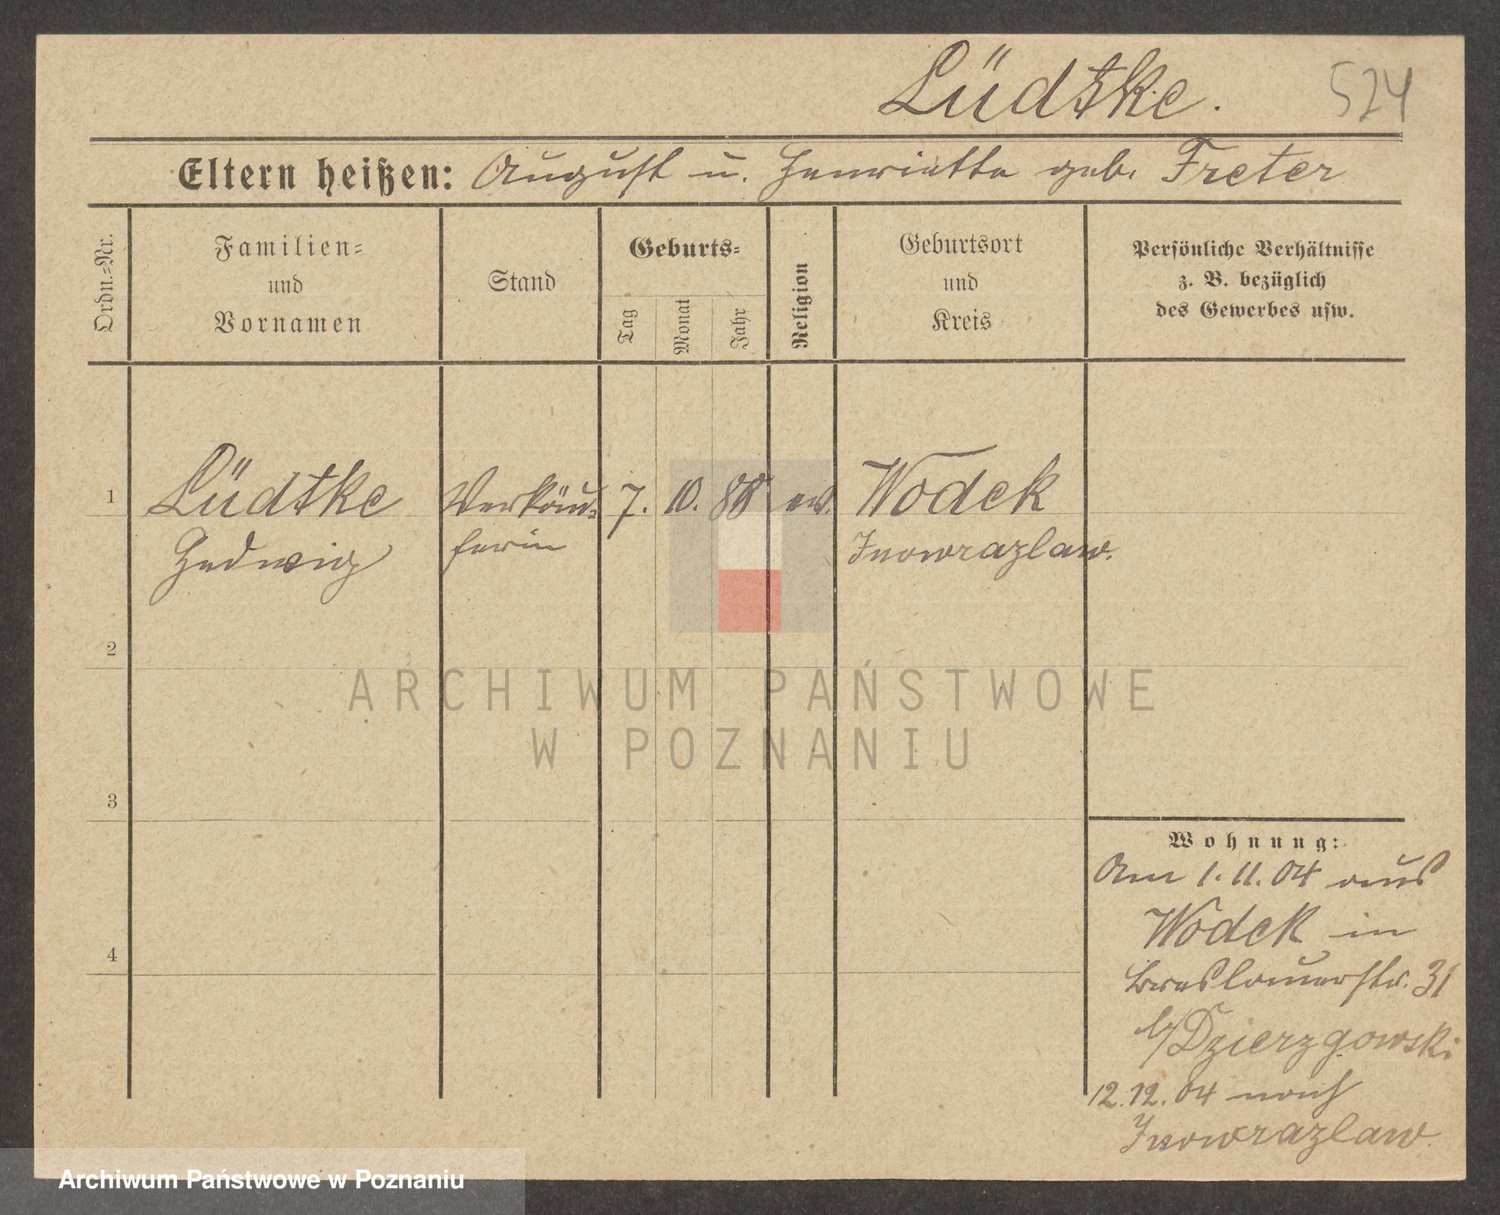 Lüdtke.
524
Eltern heißen: August u. Henriette geb. Freter
Ordn.=Nr.
Familien=
und
Vornamen
Stand
Geburts=
Tag
Monat
Jahr
Religion
Geburtsort
und
Kreis
Persönliche Verhältnisse
z. B. bezüglich
des Gewerbes usw.
1
Lüdtke
Hedwig
Verkäu=
ferin
7. 10. 88
ev.
Wodek
Inowrazlaw.
2
3
4
ARCHIWUM PAŃSTWOWE
W POZNANIU
Wohnung:
Am 1. 11. 04 aus
Wodek in
Breslauerstr. 31
b/Dzierzgowski
12. 12. 04 nach
Inowrazlaw.
Archiwum Państwowe w Poznaniu